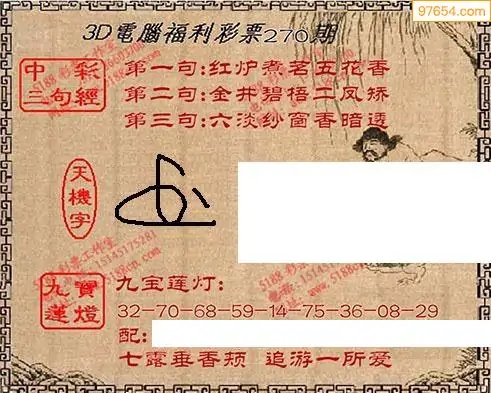 97654.com
3D電腦福利彩票270期
中彩三句經
第一句:红炉煮茗五花香
第二句:金井碧梧二凤矫
第三句:六淡纱窗香暗透
天機字
九寶蓮燈
九宝莲灯:
32-70-68-59-14-75-36-08-29
配:
七露垂香颊 追游一所爱